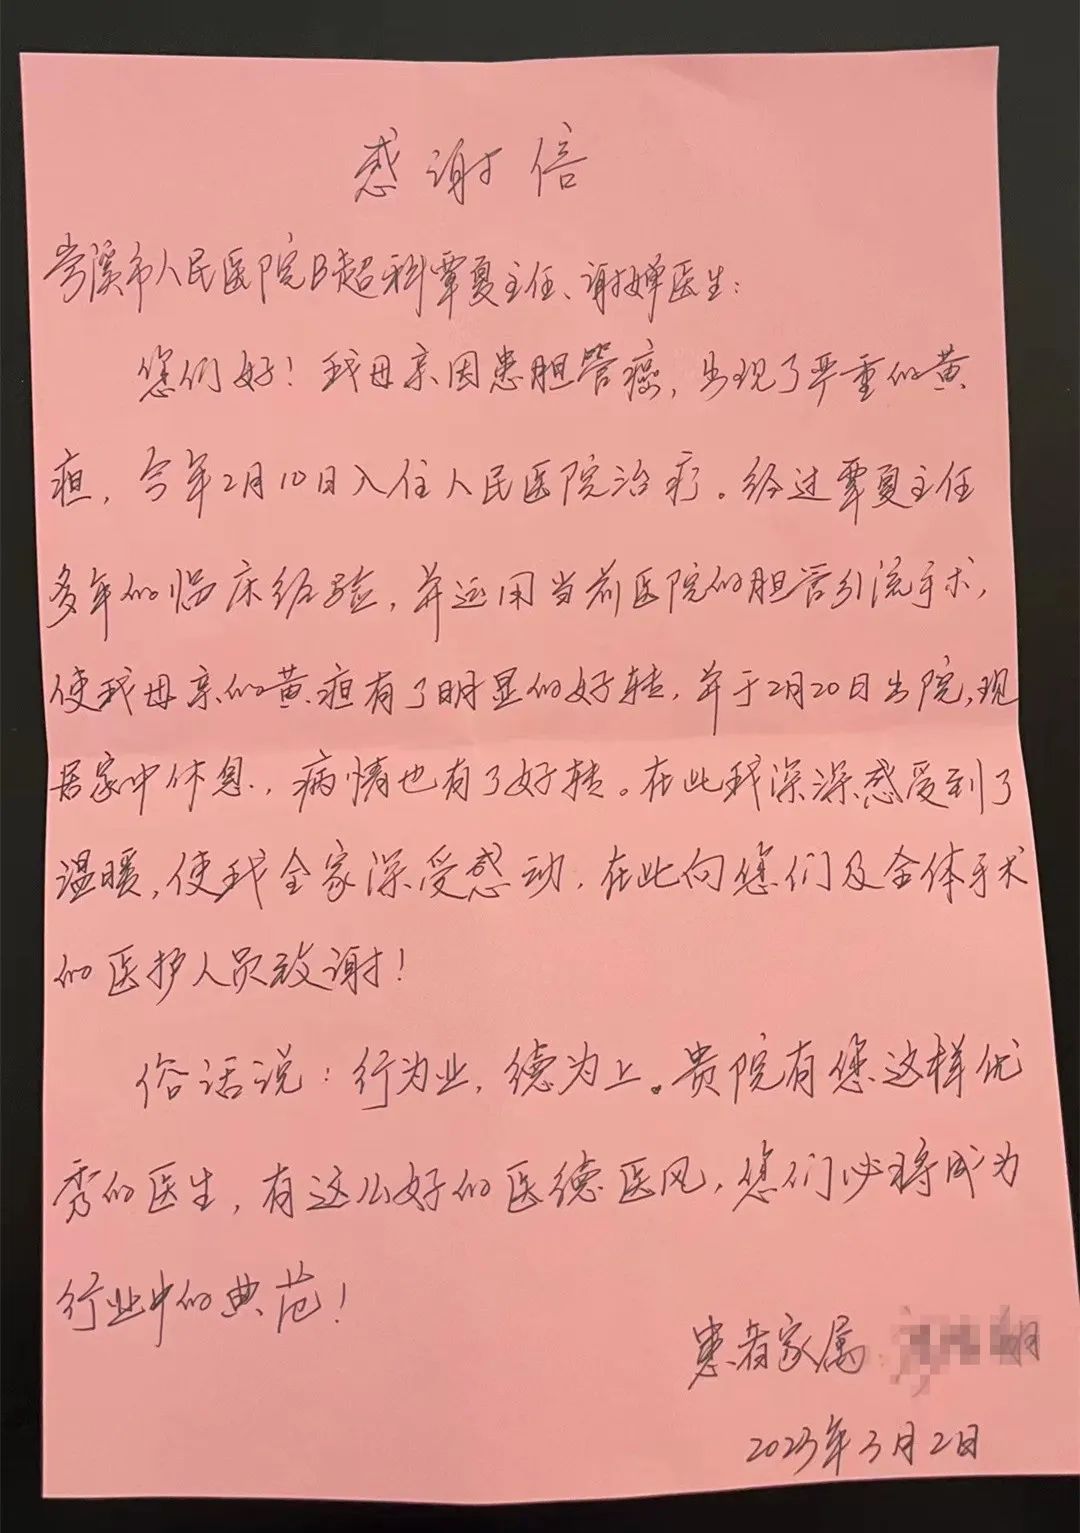 感谢信
岑溪市人民医院B超科覃夏主任、谢婵医生：
您们好！我母亲因患胆管癌，出现了严重的黄
疸，今年2月10日入住人民医院治疗。经过覃夏主任
多年的临床经验，并运用当前医院的胆管引流手术，
使我母亲的黄疸有了明显的好转，并于2月20日出院，现
居家中休息，病情也有了好转。在此我深深感受到了
温暖，使我全家深受感动，在此向您们及全体手术
的医护人员致谢！
俗话说：行为业，德为上。贵院有您这样优
秀的医生，有这么好的医德医风，您们必将成为
行业中的典范！
患者家属：
2023年3月2日